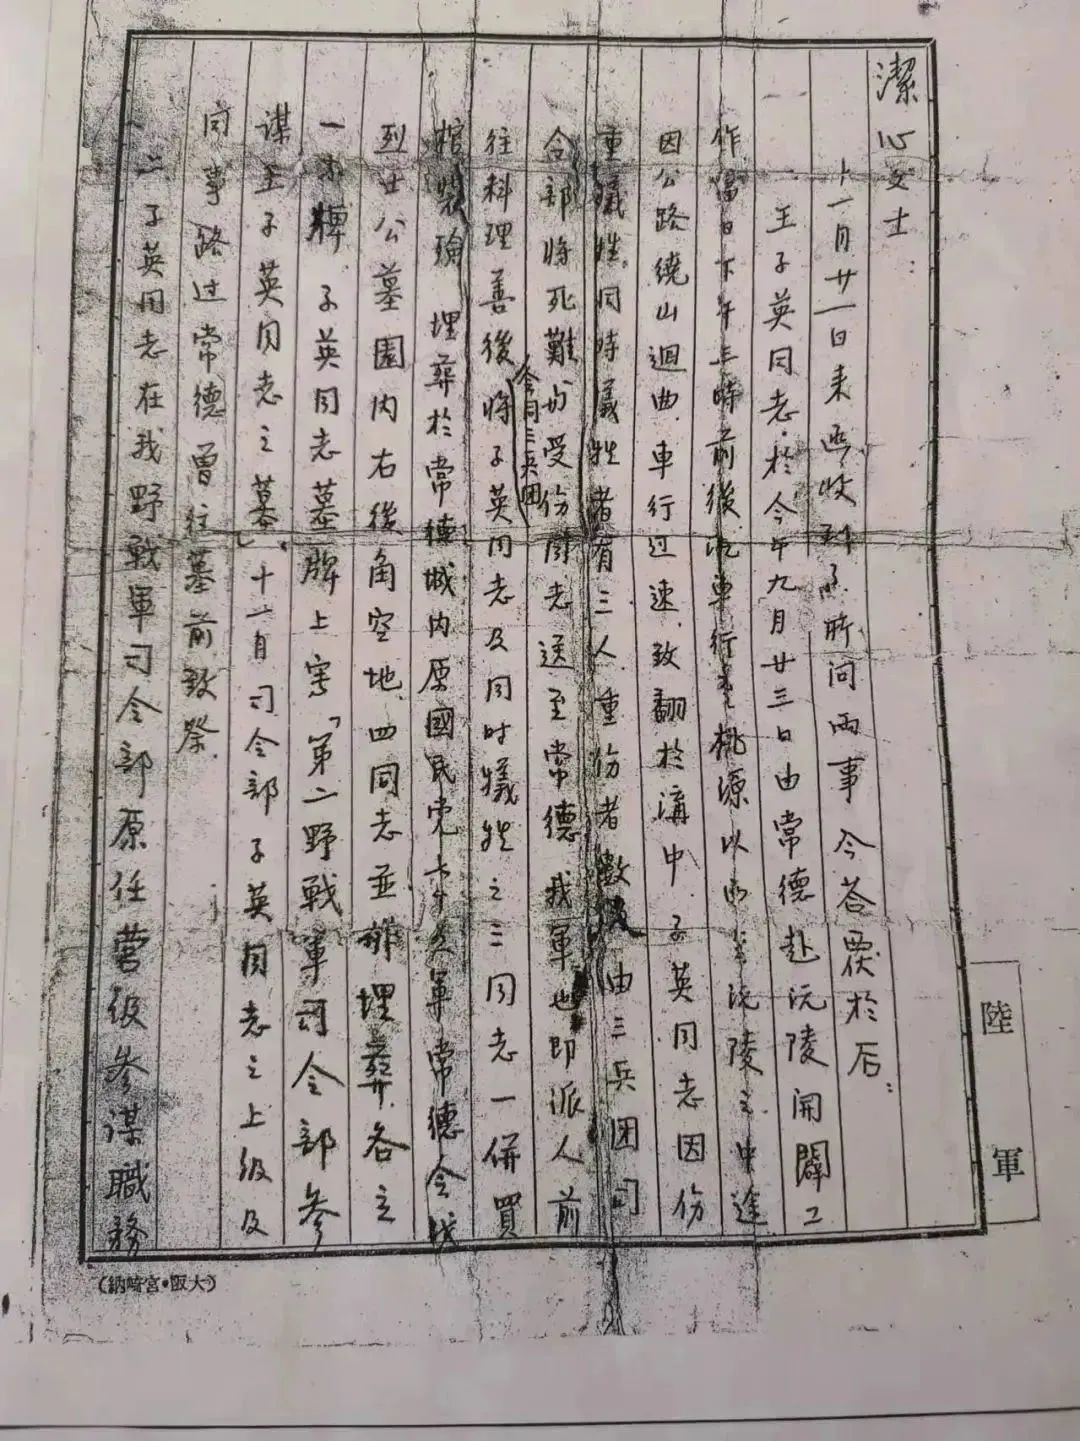 潔心女士：
十一月廿一日来函收到了，所问兩事今荅覆於后：
王子英同志，於今年九月廿三日由常德赴沅陵開闢工
作當日下午三時前後，汽車行走桃源以西至沅陵之中途
因公路繞山迴曲，車行过速，致翻於溝中，子英同志因伤
重犠牲，同時犠牲者有三人重伤者数，由三兵团司
令部将死難为受伤同志送至常德，我軍也即派人前
会同三兵团
往料理善後，将子英同志及同时犠牲之三同志一併買
棺装殮，埋葬於常德城内原國民党軍常德会战
烈士公墓園内右後角空地，四同志並排埋葬，各立
一木牌，子英同志墓牌上寫「第二野戰軍司令部參
谋王子英同志之墓」，十一月司令部子英同志之上级及
同事路过常德曾往墓前致祭，
二、子英同志在我野戰軍司令部原任营级參谋職務
陸軍
（納崎宮•阪大）